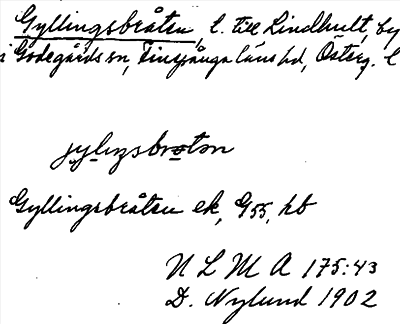 Gyllingsbråten, l. till Lindhult, by
i Godegårds sn, Finspånga läns hd, Österg. l
jyliŋsbrotən
Gyllingsbråten ek, G55, hb
N L M A 175:43
D. Nylund 1902